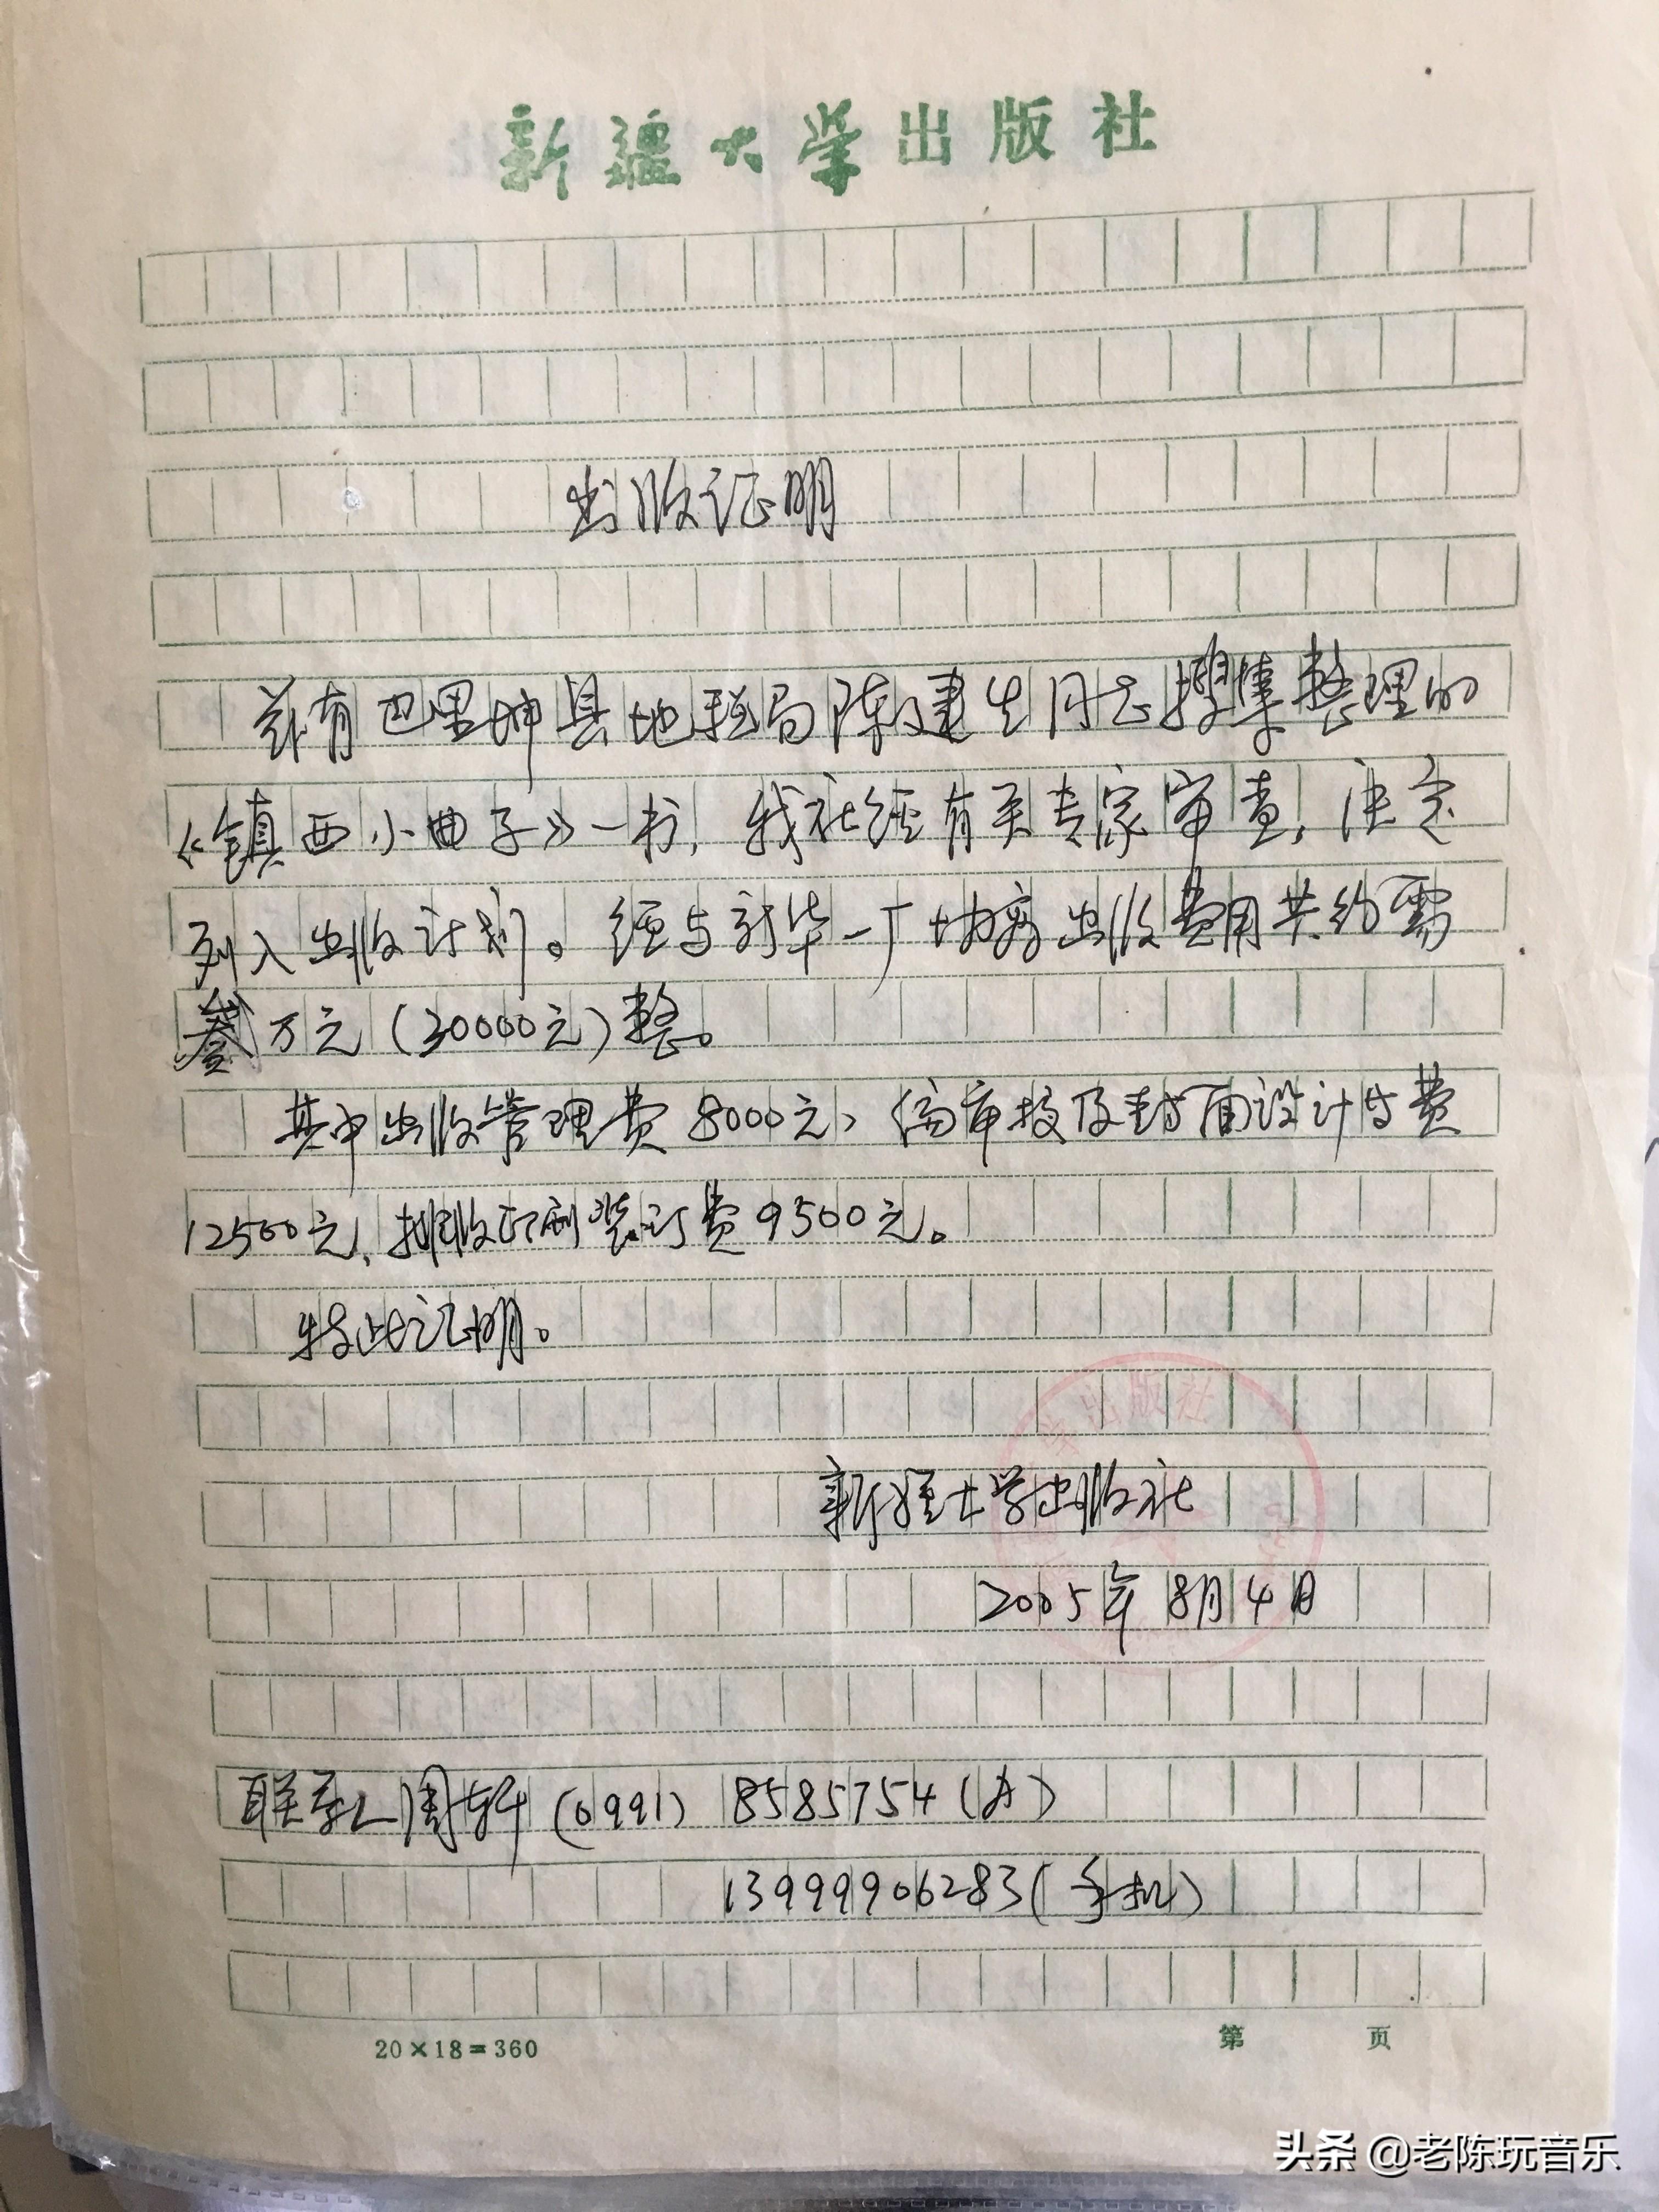 新疆大学出版社
出版证明
兹有巴里坤县地税局陈建生同志搜集整理的
《镇西小曲子》一书，我社经有关专家审查，决定
列入出版计划。经与新华一厂协商出版费用共约需
叁万元（30000元）整。
其中出版管理费8000元、编审校及封面设计等费
12500元、排版印刷装订费9500元。
特此证明。
出版社
新疆大学出版社
2005年8月4日
联系人周轩（0991）8585754（办）
13999906283（手机）
20×18=360
第 页
头条 @老陈玩音乐